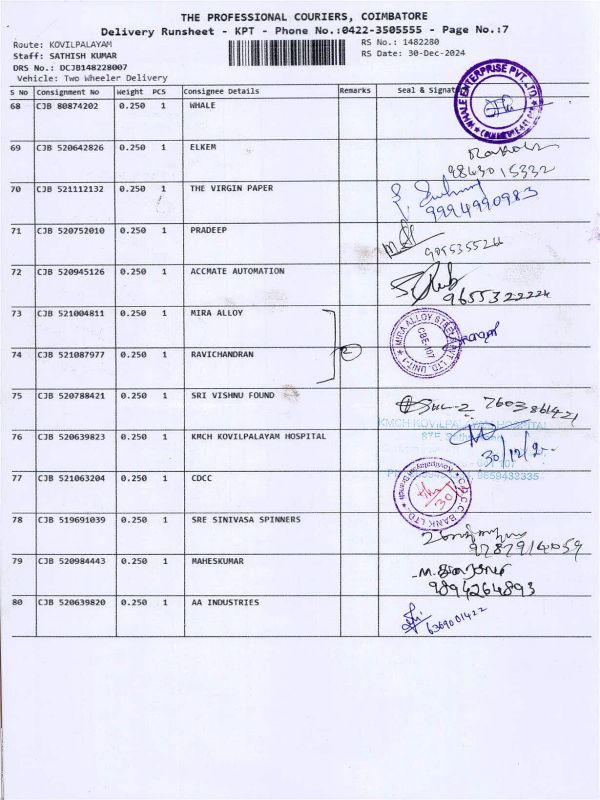 THE PROFESSIONAL COURIERS, COIMBATORE
Delivery Runsheet - KPT - Phone No.:0422-3505555 - Page No.:7
Route: KOVILPALAYAM
RS No.: 1482280
Staff: SATHISH KUMAR
RS Date: 30-Dec-2024
DRS No.: DCJB148228007
Vehicle: Two Wheeler Delivery
S No Consignment No Weight PCS Consignee Details Remarks Seal & Signatu
68 CJB 80874202 0.250 1 WHALE
WHALE ENTERPRISE PVT.LTD.
69 CJB 520642826 0.250 1 ELKEM
9843015332
70 CJB 521112132 0.250 1 THE VIRGIN PAPER
9994990983
71 CJB 520752010 0.250 1 PRADEEP
72 CJB 520945126 0.250 1 ACCMATE AUTOMATION
9655322224
73 CJB 521004811 0.250 1 MIRA ALLOY
MIRA ALLOY STEEL PVT. LTD. UNIT-1
CBE-107
74 CJB 521087977 0.250 1 RAVICHANDRAN
2
75 CJB 520788421 0.250 1 SRI VISHNU FOUND
KMCH KOVILPALAYAM HOSPITAL
76 CJB 520639823 0.250 1 KMCH KOVILPALAYAM HOSPITAL
9659432335
77 CJB 521063204 0.250 1 CDCC
C.D.C.C BANK LTD.
Kovilpalayam Branch
78 CJB 519691039 0.250 1 SRE SINIVASA SPINNERS
9787914059
79 CJB 520984443 0.250 1 MAHESKUMAR
9894264893
80 CJB 520639820 0.250 1 AA INDUSTRIES
6369001422